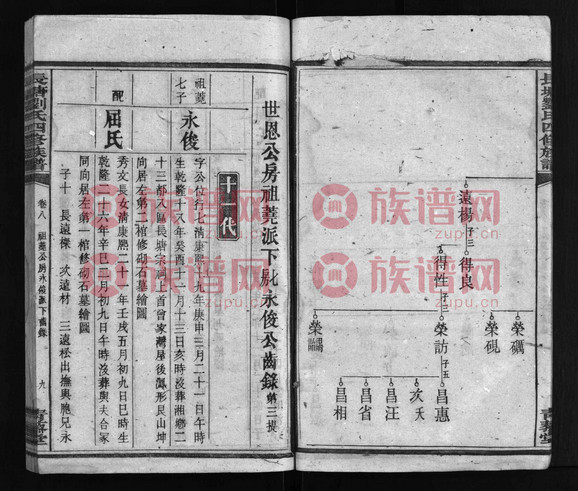 長塘劉氏四修族譜
遠楊 子三
得良
得性 子三
榮礪
榮硯
榮訪 子五
榮譜
昌惠
次夭
昌汪
昌省
昌相
世恩公房祖蕘派下 永俊公齒錄 第三提
十一代
祖蕘七子
永俊
字公位行七清康熙十九年庚申三月二十一日午時
生乾隆十八年癸酉十一月十三日亥時沒葬湘鄉二
十三都八區長塘宗祠上首曾家灣屋後瓢形艮山坤
向居左第一棺修砌石墓繪圖
配
屈氏
秀文長女清康熙二十一年壬戌五月初九日巳時生
乾隆二十六年辛巳二月初九日午時沒葬與夫合冢
同向居左第一棺修砌石墓繪圖
子十 長遠檪 次遠材 三遠松出撫與胞兄永
長塘劉氏四修族譜
卷八 祖蕘公房永俊派下齒錄
九
青藜堂
族谱网
zupu.cn